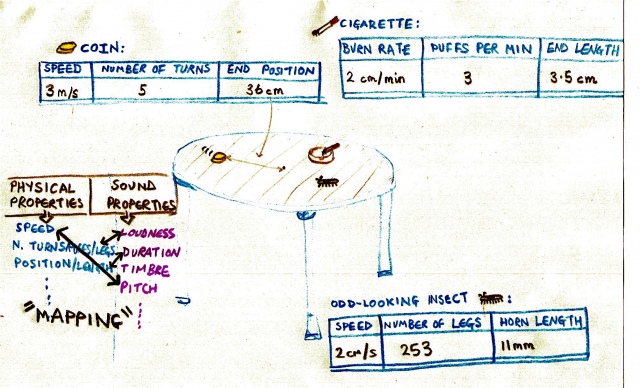 COIN:
SPEED NUMBER OF TURNS END POSITION
3 m/s 5 36 cm
CIGARETTE:
BURN RATE PUFFS PER MIN END LENGTH
2 cm/min 3 3.5 cm
PHYSICAL PROPERTIES
SOUND PROPERTIES
SPEED
N. TURNS/PUFFS/LEGS
POSITION/LENGTH
LOUDNESS
DURATION
TIMBRE
PITCH
"MAPPING"
ODD-LOOKING INSECT :
SPEED NUMBER OF LEGS HORN LENGTH
2 cm/s 253 11 mm